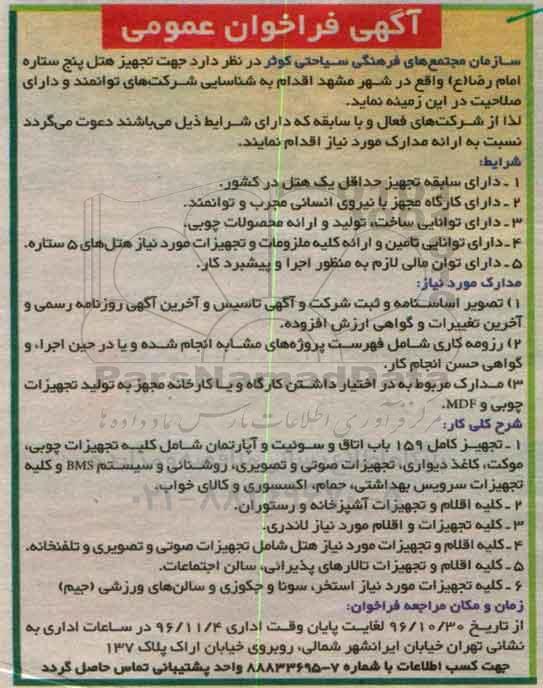 آگهی فراخوان عمومی
سازمان مجتمع‌های فرهنگی سیاحتی کوثر در نظر دارد جهت تجهیز هتل پنج ستاره
امام رضا(ع) واقع در شهر مشهد اقدام به شناسایی شرکت‌های توانمند و دارای
صلاحیت در این زمینه نماید.
لذا از شرکت‌های فعال و با سابقه که دارای شرایط ذیل می‌باشند دعوت می‌گردد
نسبت به ارائه مدارک مورد نیاز اقدام نمایند.
شرایط:
۱ ـ دارای سابقه تجهیز حداقل یک هتل در کشور.
۲ ـ دارای کارگاه مجهز با نیروی انسانی مجرب و توانمند.
۳ ـ دارای توانایی ساخت، تولید و ارائه محصولات چوبی.
۴ ـ دارای توانایی تامین و ارائه کلیه ملزومات و تجهیزات مورد نیاز هتل‌های ۵ ستاره.
۵ ـ دارای توان مالی لازم به منظور اجرا و پیشبرد کار.
مدارک مورد نیاز:
۱) تصویر اساسنامه و ثبت شرکت و آگهی تاسیس و آخرین آگهی روزنامه رسمی و
آخرین تغییرات و گواهی ارزش افزوده.
۲) رزومه کاری شامل فهرست پروژه‌های مشابه انجام شده و یا در حین اجرا، و
گواهی حسن انجام کار.
۳) مدارک مربوط به در اختیار داشتن کارگاه و یا کارخانه مجهز به تولید تجهیزات
چوبی و MDF.
شرح کلی کار:
۱ ـ تجهیز کامل ۱۵۹ باب اتاق و سوئیت و آپارتمان شامل کلیه تجهیزات چوبی،
موکت، کاغذ دیواری، تجهیزات صوتی و تصویری، روشنائی و سیستم BMS و کلیه
تجهیزات سرویس بهداشتی، حمام، اکسسوری و کالای خواب.
۲ ـ کلیه اقلام و تجهیزات آشپزخانه و رستوران.
۳ ـ کلیه تجهیزات و اقلام مورد نیاز لاندری.
۴ ـ کلیه اقلام و تجهیزات مورد نیاز هتل شامل تجهیزات صوتی و تصویری و تلفنخانه.
۵ ـ کلیه اقلام و تجهیزات تالارهای پذیرائی، سالن اجتماعات.
۶ ـ کلیه تجهیزات مورد نیاز استخر، سونا و جکوزی و سالن‌های ورزشی (جیم)
زمان و مکان مراجعه فراخوان:
از تاریخ ۹۶/۱۰/۳۰ لغایت پایان وقت اداری ۹۶/۱۱/۴ در ساعات اداری به
نشانی تهران خیابان ایرانشهر شمالی، روبروی خیابان اراک پلاک ۱۳۷
جهت کسب اطلاعات با شماره ۷-۸۸۸۳۳۶۹۵ واحد پشتیبانی تماس حاصل گردد
ParsNamadData